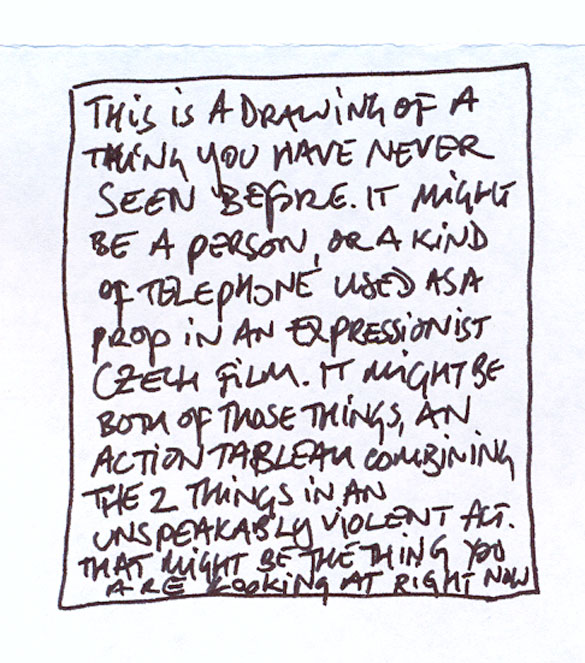 THIS IS A DRAWING OF A
THING YOU HAVE NEVER
SEEN BEFORE. IT MIGHT
BE A PERSON, OR A KIND
OF TELEPHONE USED AS A
PROP IN AN EXPRESSIONIST
CZECH FILM. IT MIGHT BE
BOTH OF THOSE THINGS, AN
ACTION TABLEAU COMBINING
THE 2 THINGS IN AN
UNSPEAKABLY VIOLENT ACT.
THAT MIGHT BE THE THING YOU
ARE LOOKING AT RIGHT NOW